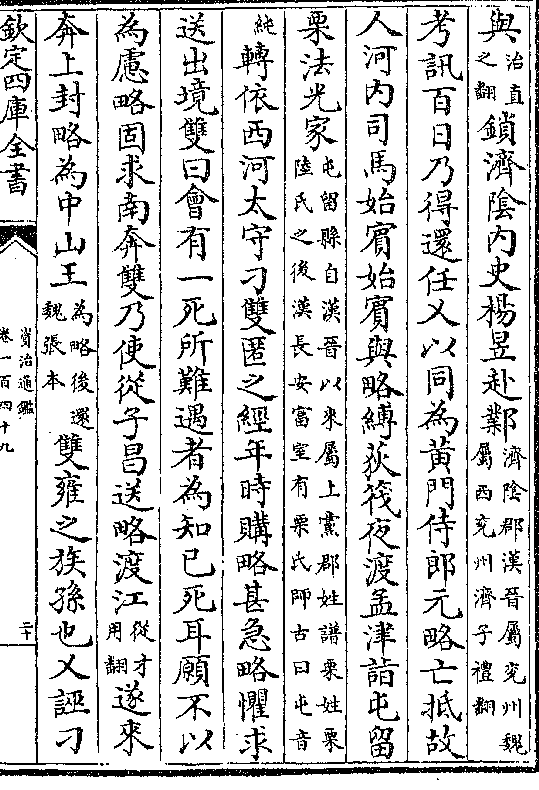 與治直之翻鎖濟陰内史楊昱赴鄴濟陰郡漢晉屬兖州魏屬西兖州濟子禮翻
考訊百日乃得還任乂以同為黄門侍郎元略亡抵故
人河内司馬始賓始賓與略縛荻筏夜渡孟津詣屯留
栗法光家屯留縣自漢晉以來屬上黨郡姓譜栗姓栗陸氏之後漢長安富室有栗氏師古曰屯音
純轉依西河太守刁雙匿之經年時購略甚急略懼求
送出境雙曰會有一死所難遇者為知已死耳願不以
為慮略固求南奔雙乃使從子昌送略渡江從才用翻遂來
奔上封略為中山王為略後還魏張本雙雍之族孫也乂誣刁
欽定四庫全書
資治通鑑
卷一百四十九
二十